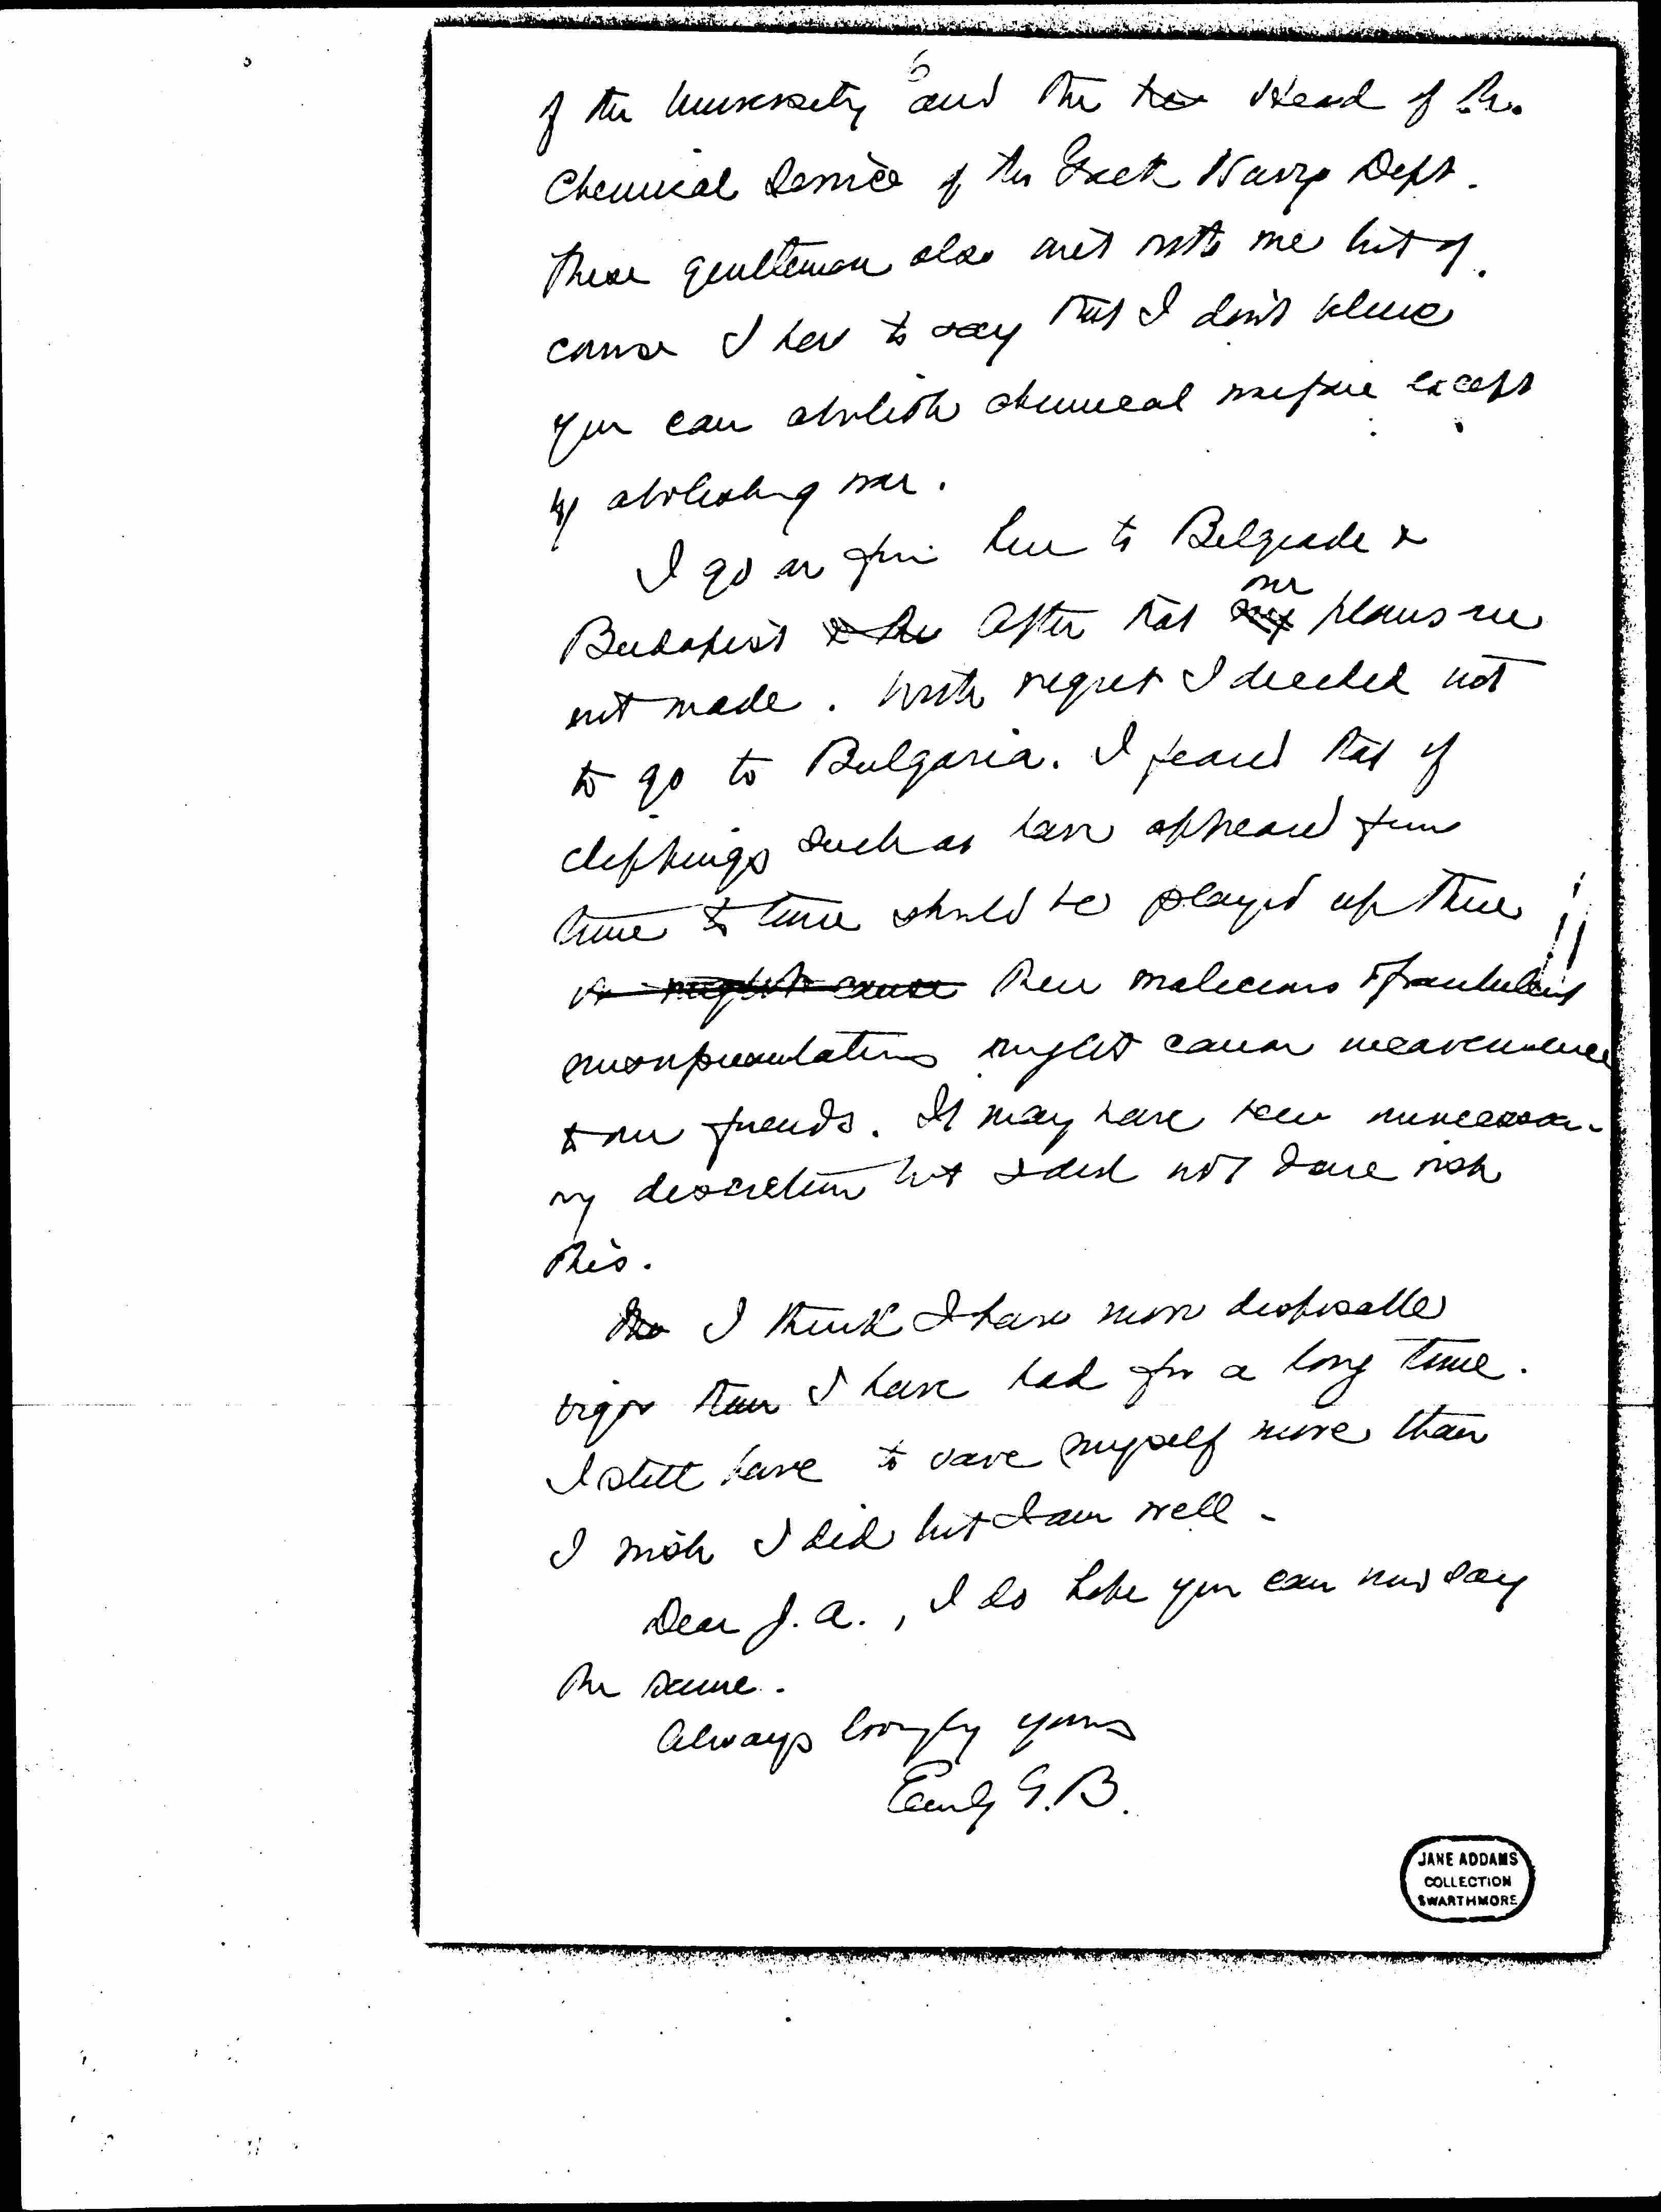 6
of the University and the Head of the
Chemical Service of the Greek Navy Dept.
These gentlemen also met with me but of
course I had to say that I don't believe
you can abolish chemical warfare except
by abolishing war.
I go on from here to Belgrade &
Budapest & the After that our my plans are
not made. With regret I decided not
to go to Bulgaria. I feared that if
clippings such as have appeared from
time to time should be played up there
it might cause their malicious & fraudulent
misrepresentations might cause inconvenience
to our friends. It may have been unnecessa-
ry discretion but I did not dare risk
this.
I think I have more disposable
vigor than I have had for a long time.
I still have to save myself more than
I wish I did but I am well -
Dear J.A., I do hope you can now say
the same.
Always lovingly yours
Emily G.B.
JANE ADDAMS
COLLECTION
SWARTHMORE